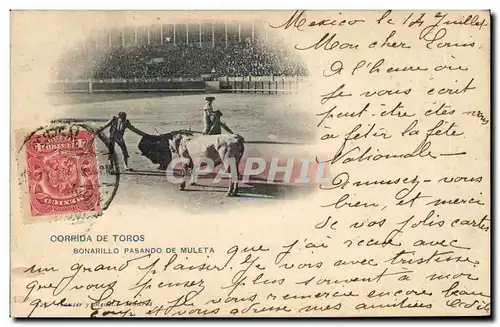 Mexico le 14 Juillet
Mon cher Louis
à l'heure où
je vous écrit
peut-être êtes-vous
à fêtir la fête
Nationale
Amusez-vous
bien, et merci
de vos jolis cartes
que j'ai reçue avec
un grand plaisir. Je vois avec tristesse
que vous pensez plus souvent à moi
que je vous remercie encore beau
coup et vous adresse mes amitiées
CORRIDA DE TOROS
BONARILLO PASANDO DE MULETA
CPAPHIL
MEXICO